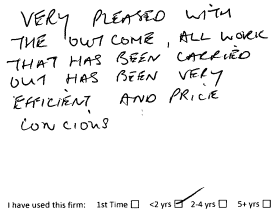 VERY PLEASED WITH
THE OUTCOME, ALL WORK
THAT HAS BEEN CARRIED
OUT HAS BEEN VERY
EFFICIENT AND PRICE
CONCIOUS
I have used this firm: 1st Time ☐ <2 yrs ☑ 2-4 yrs ☐ 5+ yrs ☐